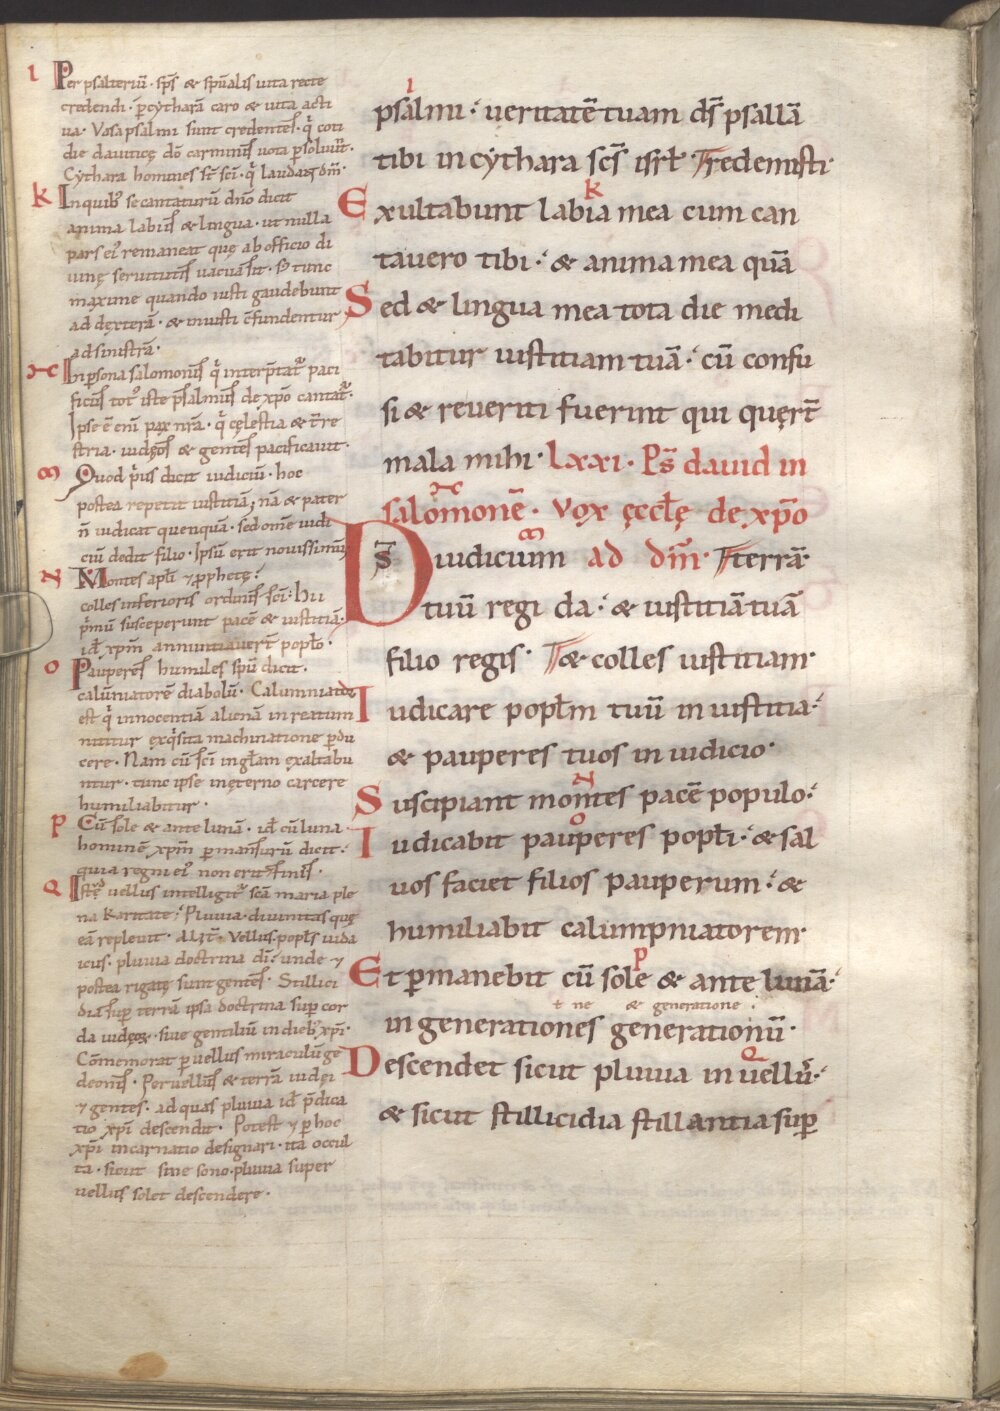 i Per psalteriũ · sp̃s & sp̃ualis uita recte
credendi · p̲ cytharã caro & uita acti
ua · Vasa psalmi sunt credentes · q̃ coti
die dauiticę dõ carminis uota p̲soluunt̃ ·
Cythara homines st̃ sc̃i · q̃ laudant dm̃ ·
k In quib; se cantaturũ dño dicit
anima labiis & lingua · ut nulla
pars ei᷒ remaneat quę ab officio di
uinę seruitutis uacua sit · S; tunc
maxime quando iusti gaudebunt
ad dexterã · & iniusti c̃fundentur
ad sinistrã ·
In p̲sona salomonis q̃ interp̃tat᷑ paci
ficus tot᷒ iste psalmus de xp̃o cantat᷑ ·
Ipse ẽ eni᷒ pax nr̃a · q̃ cęlestia & t̃re
stria · iudęos & gentes pacificauit ·
m Quod p̃us dicit iudiciũ · hoc
postea repetit iustitiã; nã & pater
ñ iudicat quenquã · sed omẽ iudi
ciũ dedit filio · Ipsũ erit nouissimũ
N Montes apl̃i ⁊ p̲phetę :
colles inferioris ordinis sc̃i · hii
p̃mũ susceperunt pacẽ & iustitiã ·
id ẽ xpm̃ annuntiauer̃t popl̃o ·
o Pauperes humiles spũ dicit ·
calũniatorẽ diabolũ · Calumniator
est q̃ innocentiã alienã in reatum
nititur exq̃sita machinatione p̲du
cere · Nam cũ sc̃i in gl̃am exaltabu
ntur · tunc ipse in ęterno carcere
humiliabitur ·
p Cũ sole & ante lunã · id ẽ cũ luna
hominẽ xpm̃ p̲mansurũ dicit ·
quia regni ei᷒ non erit finis ·
Q Iste᷒ uellus intelligit᷑ sc̃a maria ple
na karitate · Pluuia · diuinitas quę
eã repleuit · Alit̃ · Vellus · popl̃s iuda
icus · pluuia doctrina di᷒ · unde ⁊
postea rigatę sunt gentes · Stillici
dia sup̲ terrã ipsa doctrina sup̲ cor
da iudęoꝝ · siue gentiliũ in dieb; xp̃i ·
Cõmemorat p̲ uellus miraculũ ge
deonis · Per uellus & terrã iudęi
⁊ gentes · ad quas pluuia id ẽ p̃dica
tio xp̃i descendit · Potest ⁊ p̲ hoc
xp̃i incarnatio designari · ita occul
ta · sicut sine sono pluuia super
uellus solet descendere ·
i
psalmi · ueritatẽ tuam ds̃ psallã
tibi in cythara scs̃ isrł · redemisti ·
k
Exultabunt labia mea cum can
tauero tibi · & anima mea quã
Sed & lingua mea tota die medi
tabitur iustitiam tuã · cũ confu
si & reueriti fuerint qui quęrt̃
mala mihi · lxxi · Ps̃ dauid in
salomonẽ · vox ęccłę de xp̃o
m
Ds̃ iudicium ad dm̃ · terrã ·
tuũ regi da · & iustitiã tuã
filio regis · & colles iustitiam ·
Iudicare popłm tuũ in iustitia ·
& pauperes tuos in iudicio ·
N
Suscipiant montes pacẽ populo ·
o
Iudicabit pauperes popłi · & sal
uos faciet filios pauperum · &
humiliabit calumpniatorem ·
p
Et p̲manebit cũ sole & ante lunã ·
ł ne & generatione ·
in generationes generationũ ·
Q
Descendet sicut pluuia in uellus ·
& sicut stillicidia stillantia sup̲